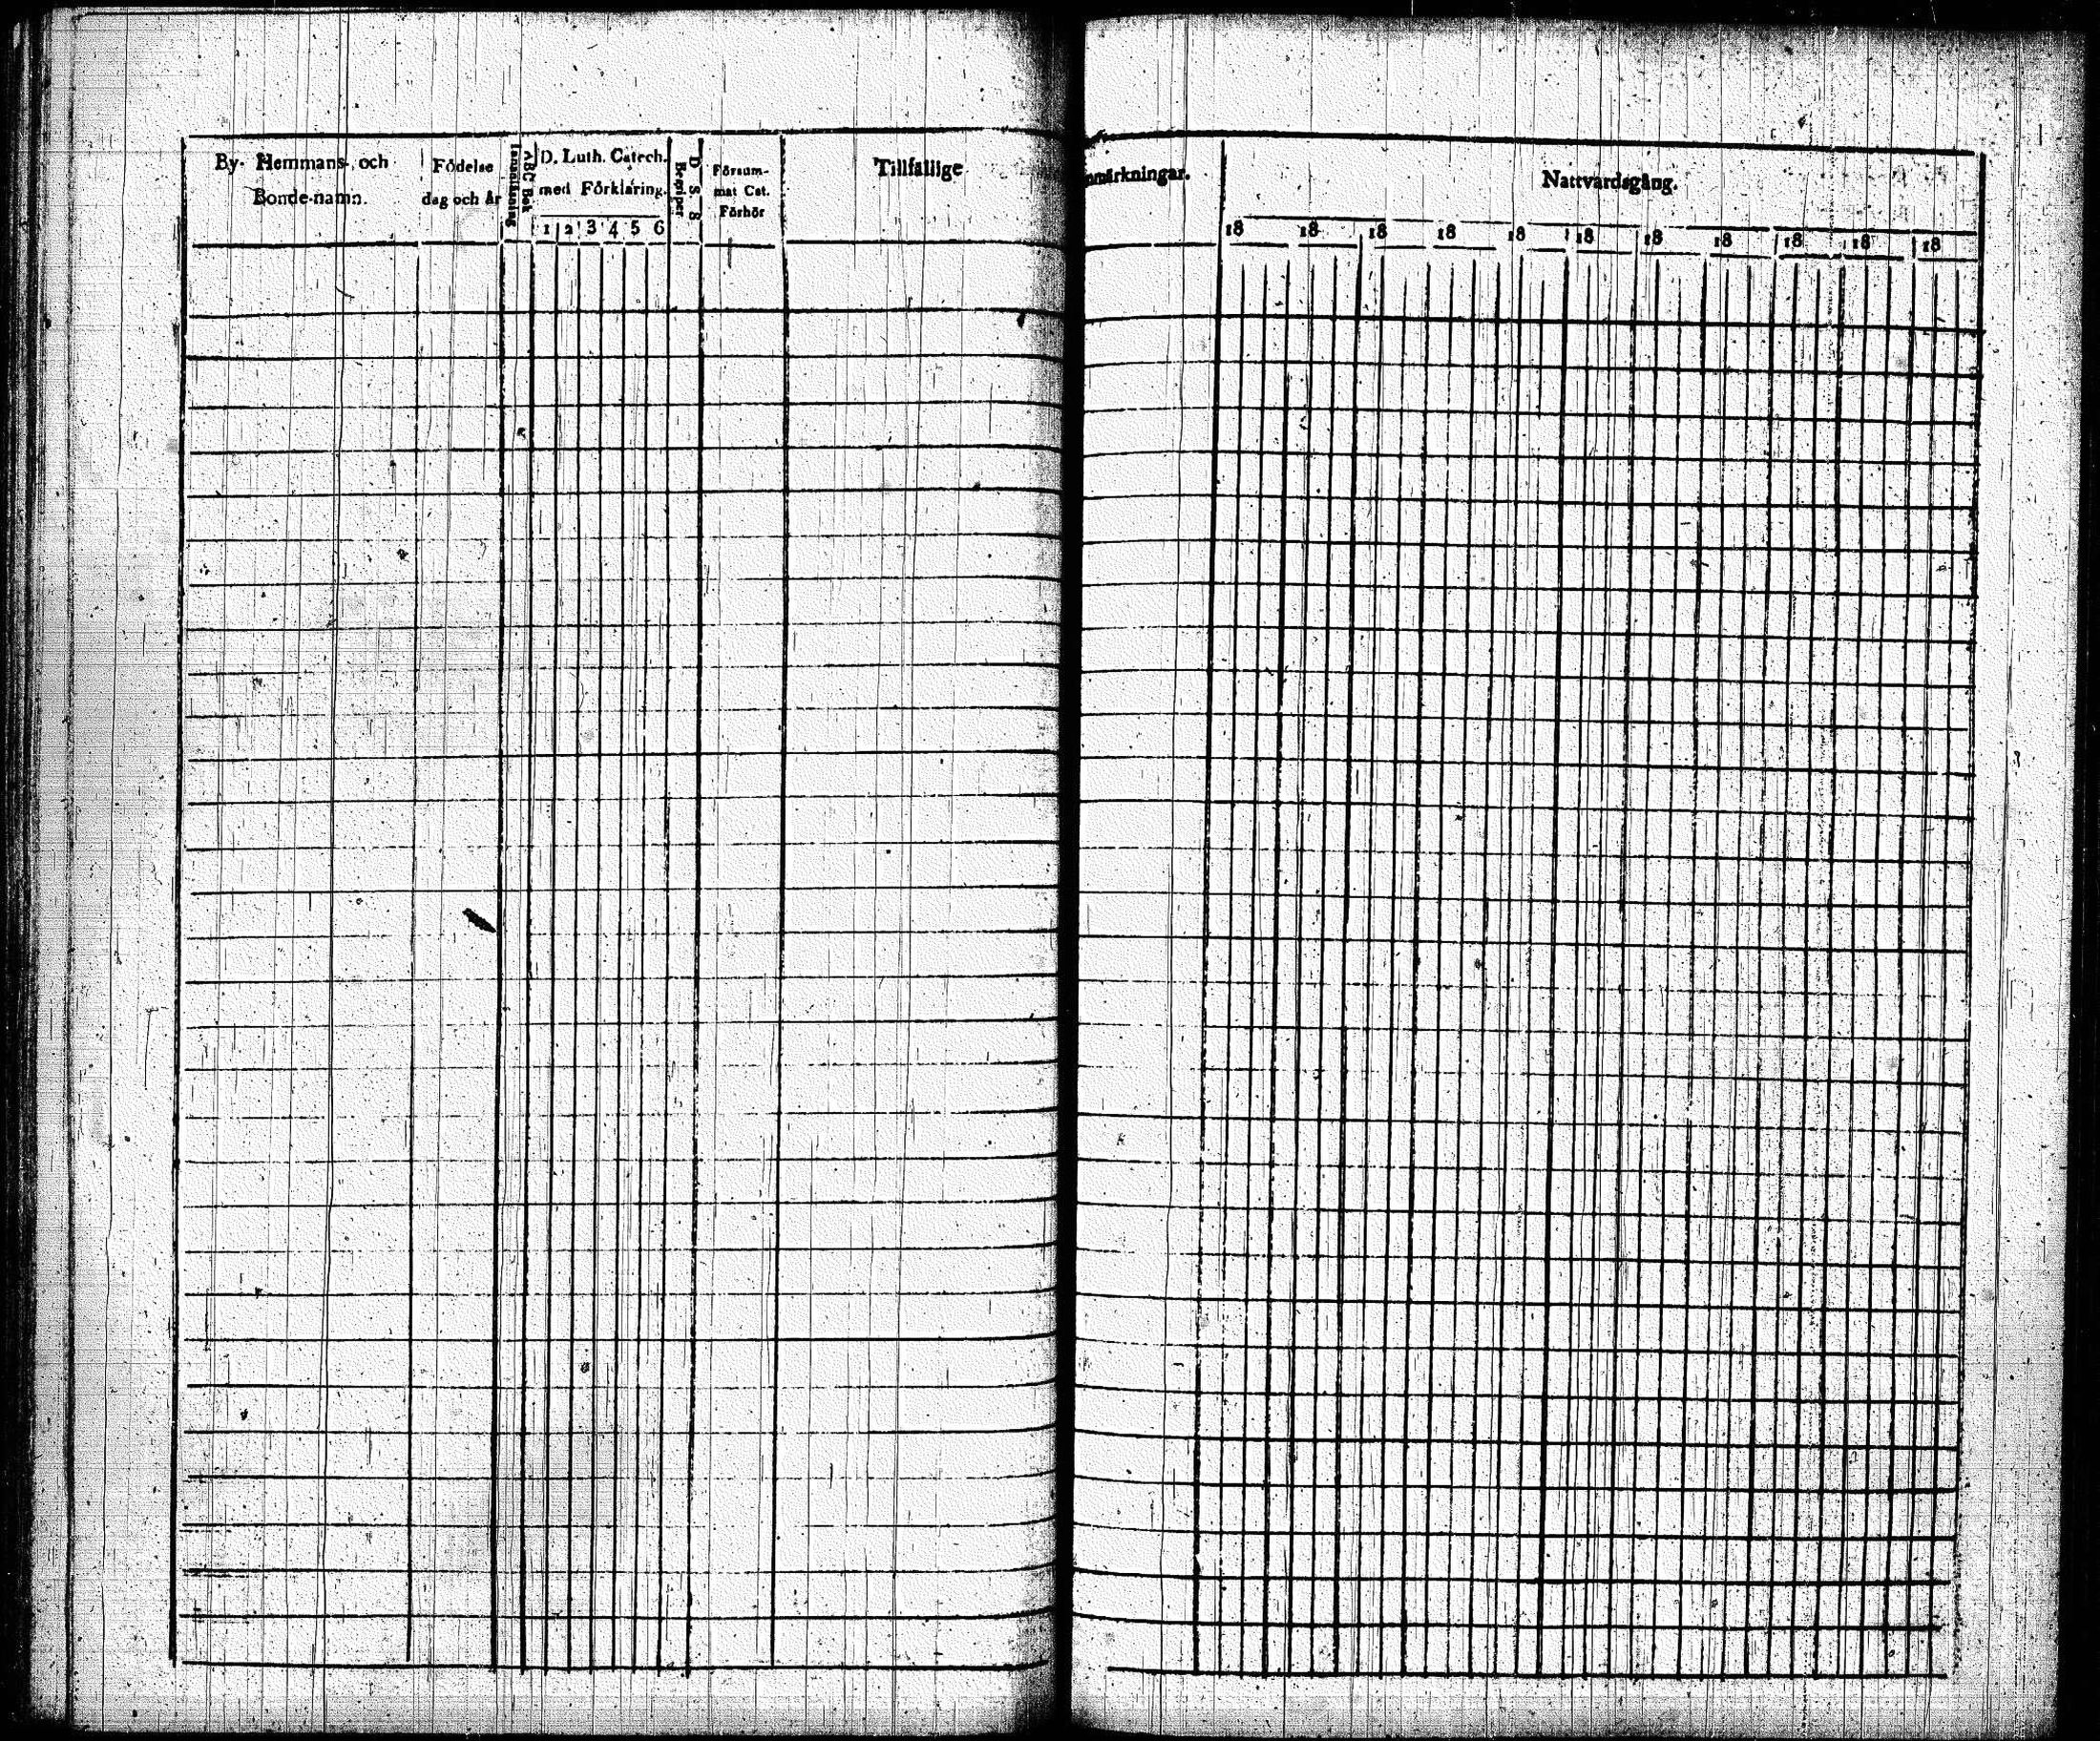 By- Hemmans- och
Bonde-namn.
Födelse
dag och år
Innanläsning
ABC Bok
D. Luth. Catech.
med Förklaring.
1 2 3 4 5 6
D. S. 8
Begriper
Försum-
mat Cat.
Förhör
Tillfällige
nmärkningar.
Nattvardsgång.
18 18 18 18 18 18 18 18 18 18 18